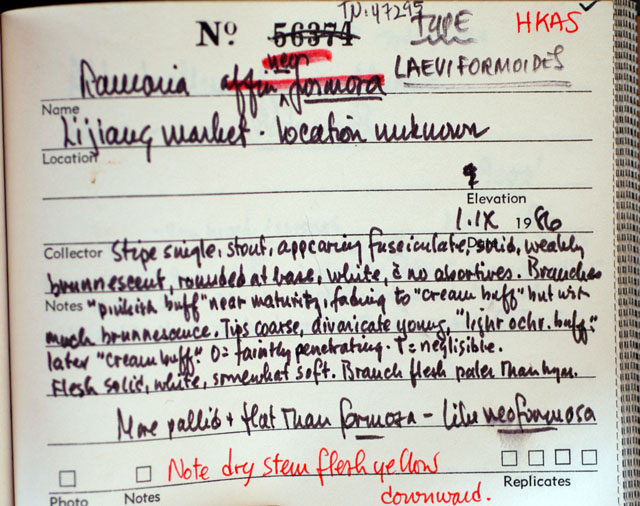 TN:47295
No 56374 TYPE HKAS
Ramaria affin neo formosa LAEVIFORMOIDES
Name
Lijiang market. location unknown
Location
Elevation
1.IX 1986
Date
Collector Stipe single, stout, appearing fusciculate, solid, weakly
brunnescent, rounded at base, white, c̄ no abortives. Branches
Notes "pinkish buff" near maturity, fading to "cream buff" but with
much brunnescence. Tips coarse, divaricate young, "light ochr. buff"
later "cream buff". O= faintly penetrating. T= negligible.
Flesh solid, white, somewhat soft. Branch flesh paler than hym.
More pallid + flat than formosa - like neoformosa
Note dry stem flesh yellow
downward.
Photo Notes Replicates